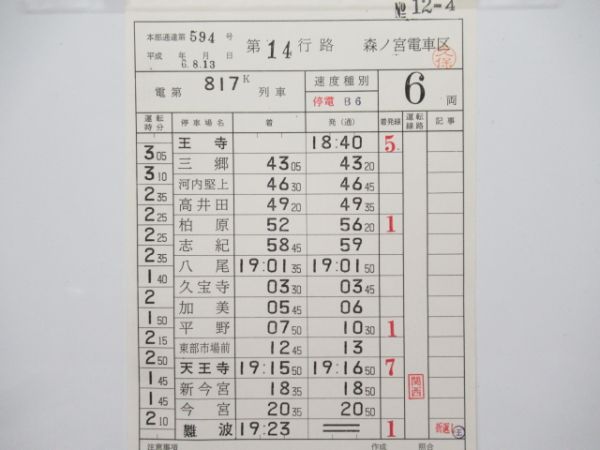 № 12-4
本部通達第 594 号
平成 年 月 日
6.8.13
第 14 行路 森ノ宮電車区
電第 817K 列車 速度種別 6 両
停電 B6
運転時分 停車場名 着 発(通) 着発線 運転線路 記事
王寺 18:40 5
3 05 三郷 43 05 43 20
3 10 河内堅上 46 30 46 45
2 35 高井田 49 20 49 35
2 25 柏原 52 56 20 1
2 25 志紀 58 45 59
2 35 八尾 19:01 35 19:01 50
1 40 久宝寺 03 30 03 45
2 加美 05 45 06
1 50 平野 07 50 10 30 1
2 15 東部市場前 12 45 13
2 50 天王寺 19:15 50 19:16 50 7
1 45 新今宮 18 35 18 50 関西
1 45 今宮 20 35 20 50
2 10 難波 19:23 1 折返し
注意事項 作成 照合